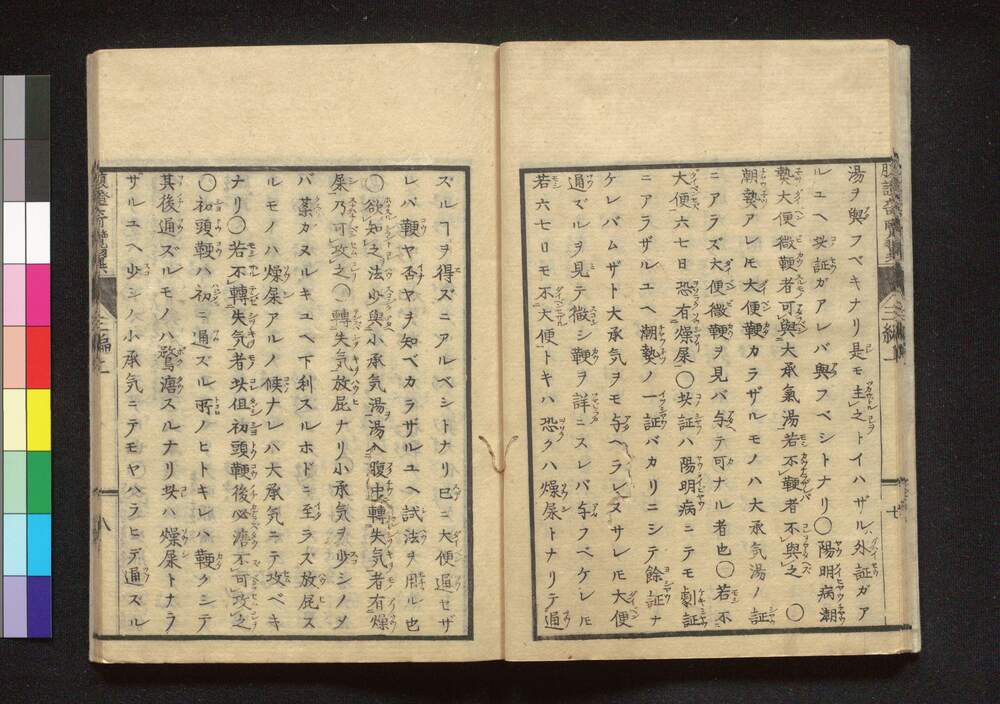 湯ヲ與フベキナリ是モ主之トイハザル外証ガア
ルユヘ此証ガアレバ與フベシトナリ〇陽明病潮
熱大便微鞕者可與大承氣湯若不鞕者不與之〇
潮熱アレ𪜈大便鞕カラザルモノハ大承気湯ノ証
ニアラズ大便微鞕ヲ見バ与テ可ナル者也〇若不
大便六七日恐有燥屎〇此証ハ陽明病ニテモ劇証
ニアラザルユヘ潮熱ノ一証バカリニシテ餘証ナ
ケレバムザト大承気ヲモ与ヘラレヌサレ𪜈大便
通ズルヲ見テ微シ鞕ヲ詳ニスレバ与フベケレ𪜈
若六七日モ不大便トキハ恐クハ燥屎トナリテ通
ズルヿヲ得ズニアルベシトナリ已ニ大便通セザ
レバ鞕ヤ否ヤヲ知ベカラザルユヘ試法ヲ用ル也
〇欲知之法少與小承気湯湯入腹中轉失気者有燥
屎乃可攻之〇轉失気放屁ナリ小承気ヲ少シノメ
バ薬カヌルキユヘ下利スルホドニ至ラズ放屁ス
ルモノハ燥屎アルノ候ナレハ大承気ニテ攻ベキ
ナリ〇若不轉失気者此但初頭鞕後必溏不可攻之
〇初頭鞕ハ初ニ通ズル所ノヒトキレハ鞕クシテ
其後通ズルモノハ鶩溏スルナリ此ハ燥屎トナラ
ザルユヘ少シノ小承気ニテモヤハラヒデ通ズル
三編上
八